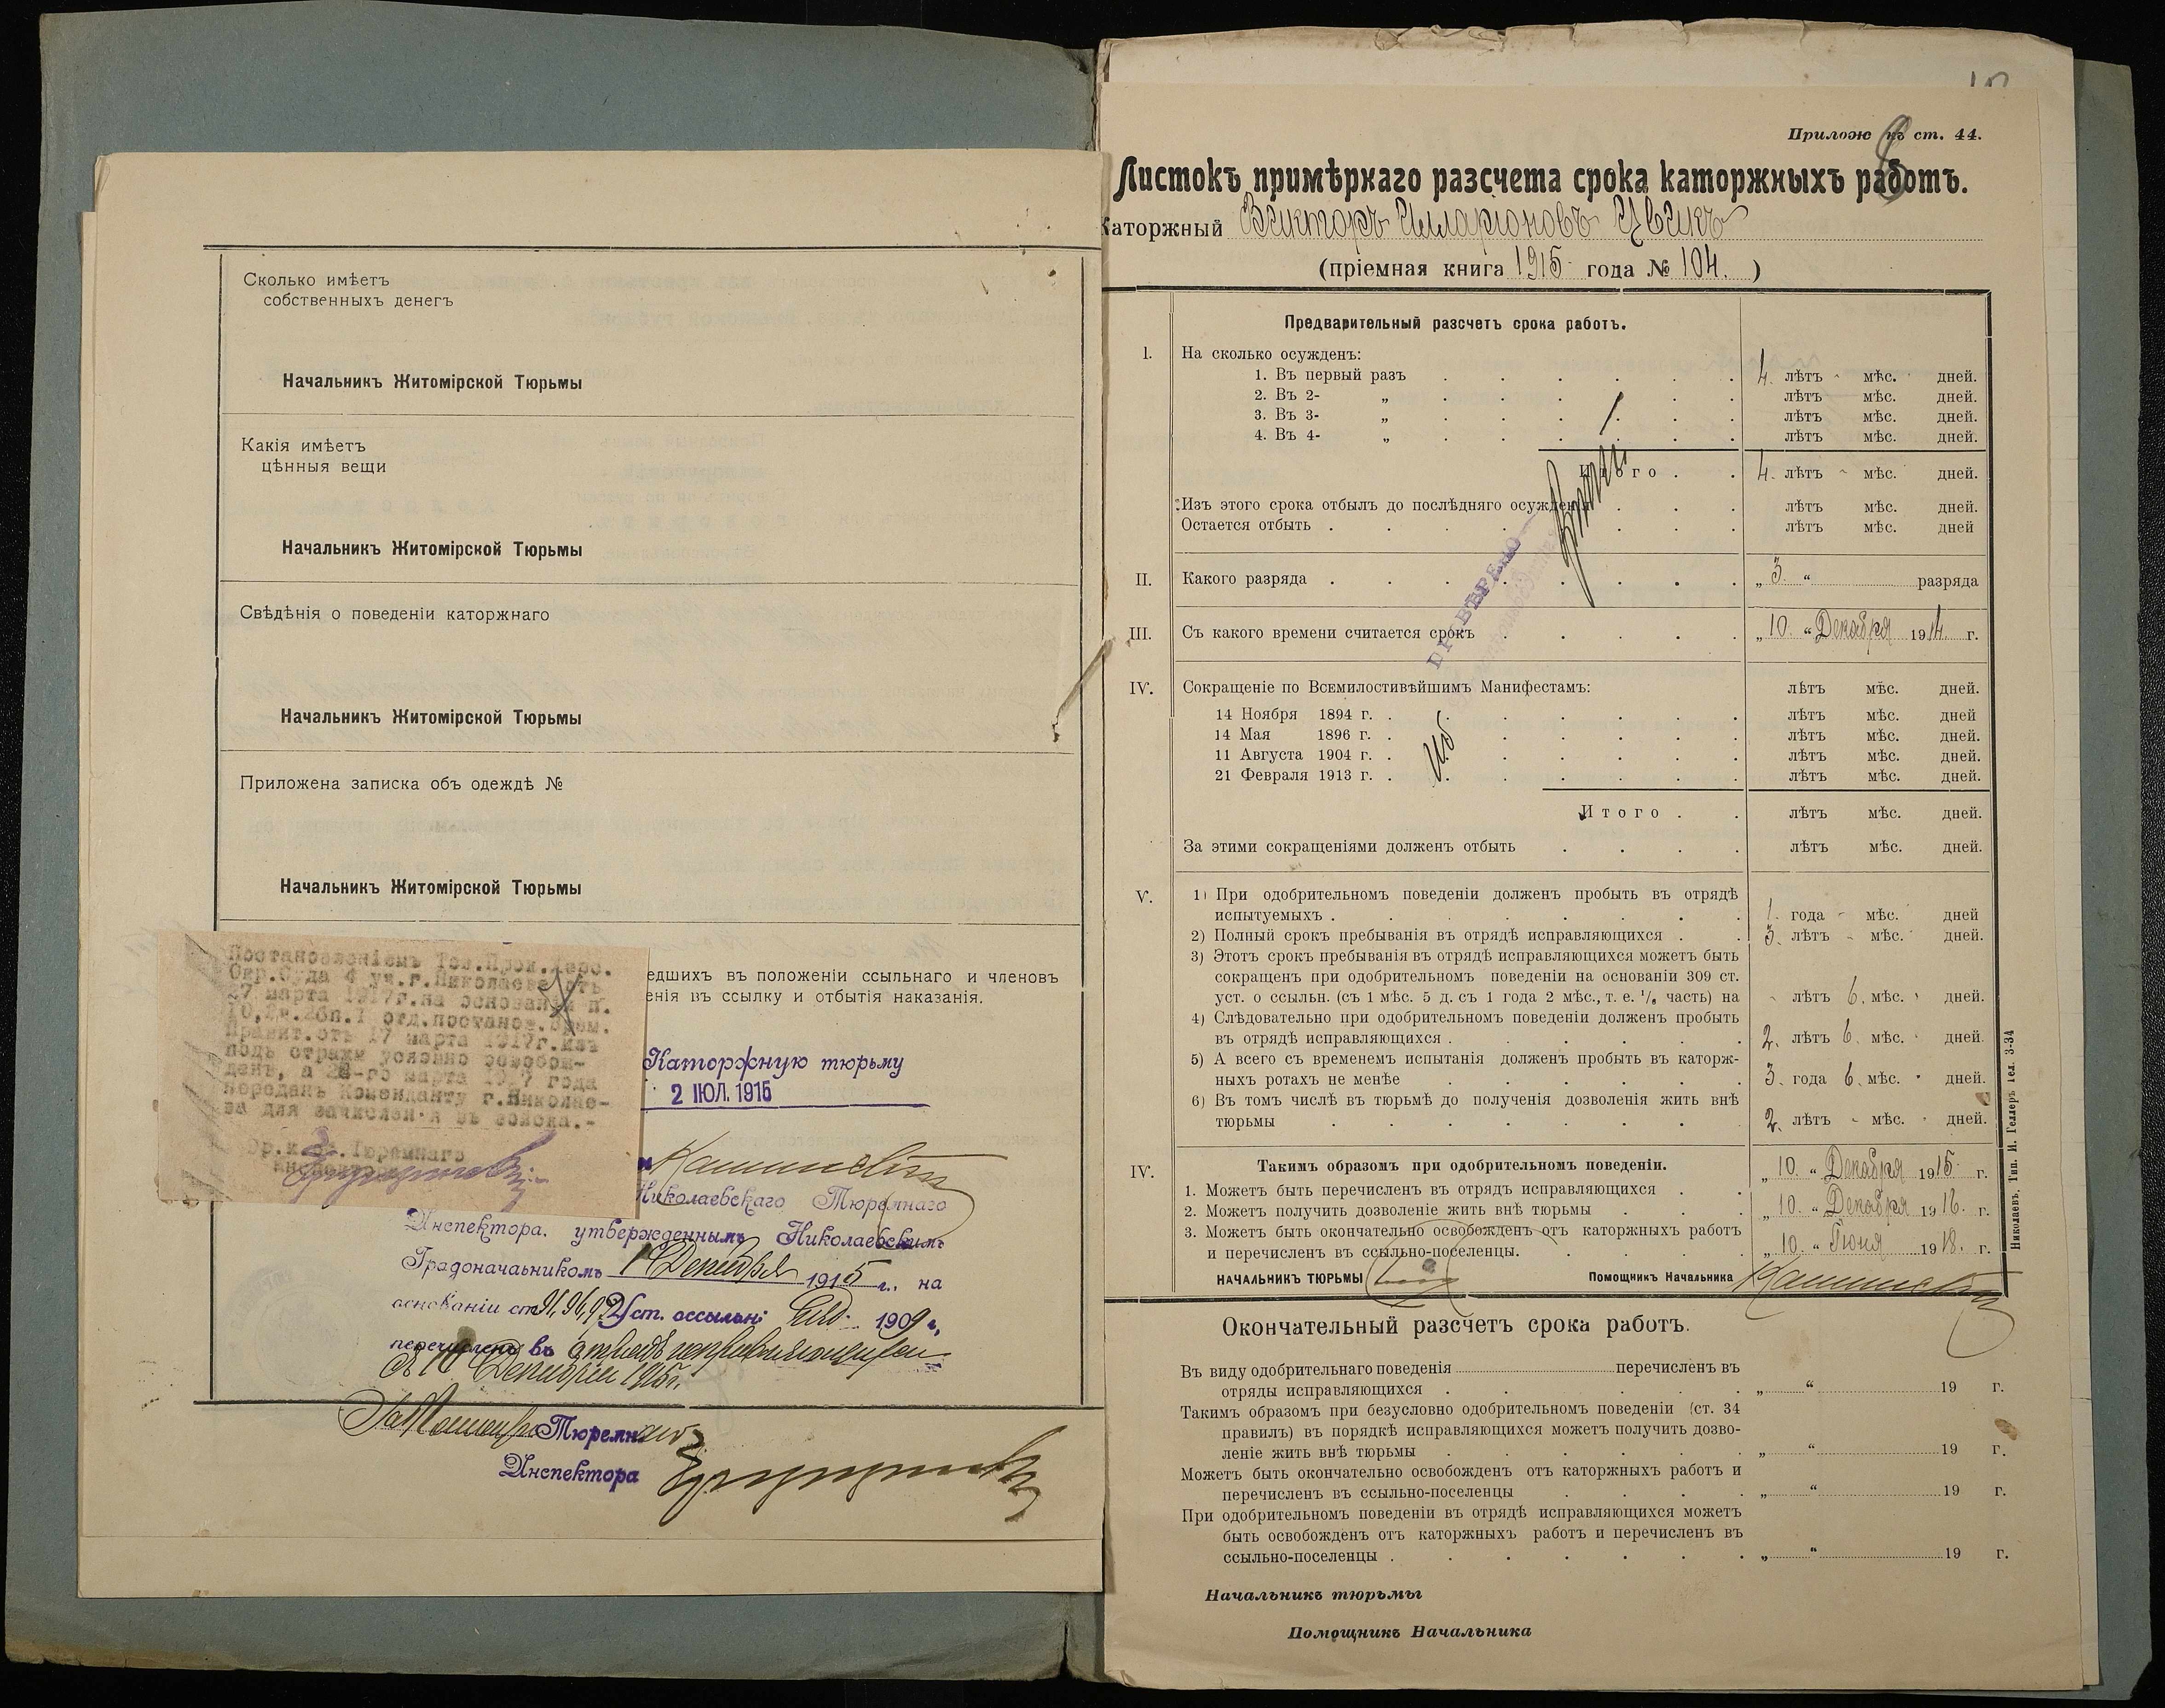 Сколько имѣетъ
собственныхъ денегъ
Начальникъ Житомірской Тюрьмы
Какія имѣетъ
цѣнныя вещи
Начальникъ Житомірской Тюрьмы
Свѣдѣнія о поведеніи каторжнаго
Начальникъ Житомірской Тюрьмы
Приложена записка объ одеждѣ №
Начальникъ Житомірской Тюрьмы
едшихъ въ положеніи ссыльнаго и членовъ
енія въ ссылку и отбытія наказанія.
Постановленіемъ Тов. Прок. Херс.
Окр. Суда 4 уч. г. Николаева отъ
27 марта 1917г. на основаніи п.
отд. постанов. Врем.
Правит. отъ 17 марта 1917г. изъ
подъ стражи условно освобож-
денъ, а 28-го марта 1917 года
переданъ Коменданту г. Николае-
ва для зачисленія въ войска.-
Вр. и. об. Тюремнаго
Инспектора
Каторжную тюрьму
2 ІЮЛ. 1915
Николаевскаго Тюремнаго
Инспектора, утвержденнымъ Николаевскимъ
Градоначальникомъ 1 Декабря 1915 г., на
основаніи ст. 91, 96, Уст. о ссыльн: изд. 1909 г,
перечисленъ въ отрядъ исправляющихся
съ 10 Декабря 1915г.
За Помощн. Тюремнаго
Инспектора
Прилож къ ст. 44.
Листокъ примѣрнаго разсчета срока каторжныхъ работъ.
Каторжный Викторъ Илларіоновъ Цвикъ
(пріемная книга 1915 года № 104. )
Предварительный разсчетъ срока работъ.
I. На сколько осужденъ:
1. Въ первый разъ 4. лѣтъ - мѣс. дней.
2. Въ 2- „ лѣтъ мѣс. дней.
3. Въ 3- „ лѣтъ мѣс. дней.
4. Въ 4- „ лѣтъ мѣс. дней.
Итого 4. лѣтъ - мѣс. дней.
Изъ этого срока отбылъ до послѣдняго осужденія лѣтъ мѣс. дней.
Остается отбыть лѣтъ мѣс. дней
ПРОВѢРЕНО
II. Какого разряда „ 3. “ разряда
III. Съ какого времени считается срокъ „ 10. “ Декабря 1914. г.
IV. Сокращеніе по Всемилостивѣйшимъ Манифестамъ: лѣтъ мѣс. дней.
14 Ноября 1894 г. лѣтъ мѣс. дней
14 Мая 1896 г. лѣтъ мѣс. дней.
11 Августа 1904 г. лѣтъ мѣс. дней.
21 Февраля 1913 г. лѣтъ мѣс. дней.
Итого лѣтъ мѣс. дней.
За этими сокращеніями долженъ отбыть лѣтъ мѣс. дней.
V. 1) При одобрительномъ поведеніи долженъ пробыть въ отрядѣ
испытуемыхъ 1. года - мѣс. дней
2) Полный срокъ пребыванія въ отрядѣ исправляющихся 3. лѣтъ - мѣс. дней.
3) Этотъ срокъ пребыванія въ отрядѣ исправляющихся можетъ быть
сокращенъ при одобрительномъ поведеніи на основаніи 309 ст.
уст. о ссыльн. (съ 1 мѣс. 5 д. съ 1 года 2 мѣс., т. е. 1/6 часть) на - лѣтъ 6. мѣс. дней.
4) Слѣдовательно при одобрительномъ поведеніи долженъ пробыть
въ отрядѣ исправляющихся 2. лѣтъ 6. мѣс. дней.
5) А всего съ временемъ испытанія долженъ пробыть въ каторж-
ныхъ ротахъ не менѣе 3. года 6. мѣс. дней.
6) Въ томъ числѣ въ тюрьмѣ до полученія дозволенія жить внѣ
тюрьмы 2. лѣтъ - мѣс. дней.
IV. Такимъ образомъ при одобрительномъ поведеніи.
1. Можетъ быть перечисленъ въ отрядъ исправляющихся „ 10. “ Декабря 1915 г.
2. Можетъ получить дозволеніе жить внѣ тюрьмы „ 10. “ Декабря 1916. г.
3. Можетъ быть окончательно освобожденъ отъ каторжныхъ работъ
и перечисленъ въ ссыльно-поселенцы. „ 10. “ Іюня 1918. г.
НАЧАЛЬНИКЪ ТЮРЬМЫ Помощникъ Начальника
Николаевъ, Тип. И. Геллеръ Тел. 3-34
Окончательный разсчетъ срока работъ.
Въ виду одобрительнаго поведенія перечисленъ въ
отряды исправляющихся „ “ 19 г.
Такимъ образомъ при безусловно одобрительномъ поведеніи (ст. 34
правилъ) въ порядкѣ исправляющихся можетъ получить дозво-
леніе жить внѣ тюрьмы „ “ 19 г.
Можетъ быть окончательно освобожденъ отъ каторжныхъ работъ и
перечисленъ въ ссыльно-поселенцы „ “ 19 г.
При одобрительномъ поведеніи въ отрядѣ исправляющихся можетъ
быть освобожденъ отъ каторжныхъ работъ и перечисленъ въ
ссыльно-поселенцы „ “ 19 г.
Начальникъ тюрьмы
Помощникъ Начальника